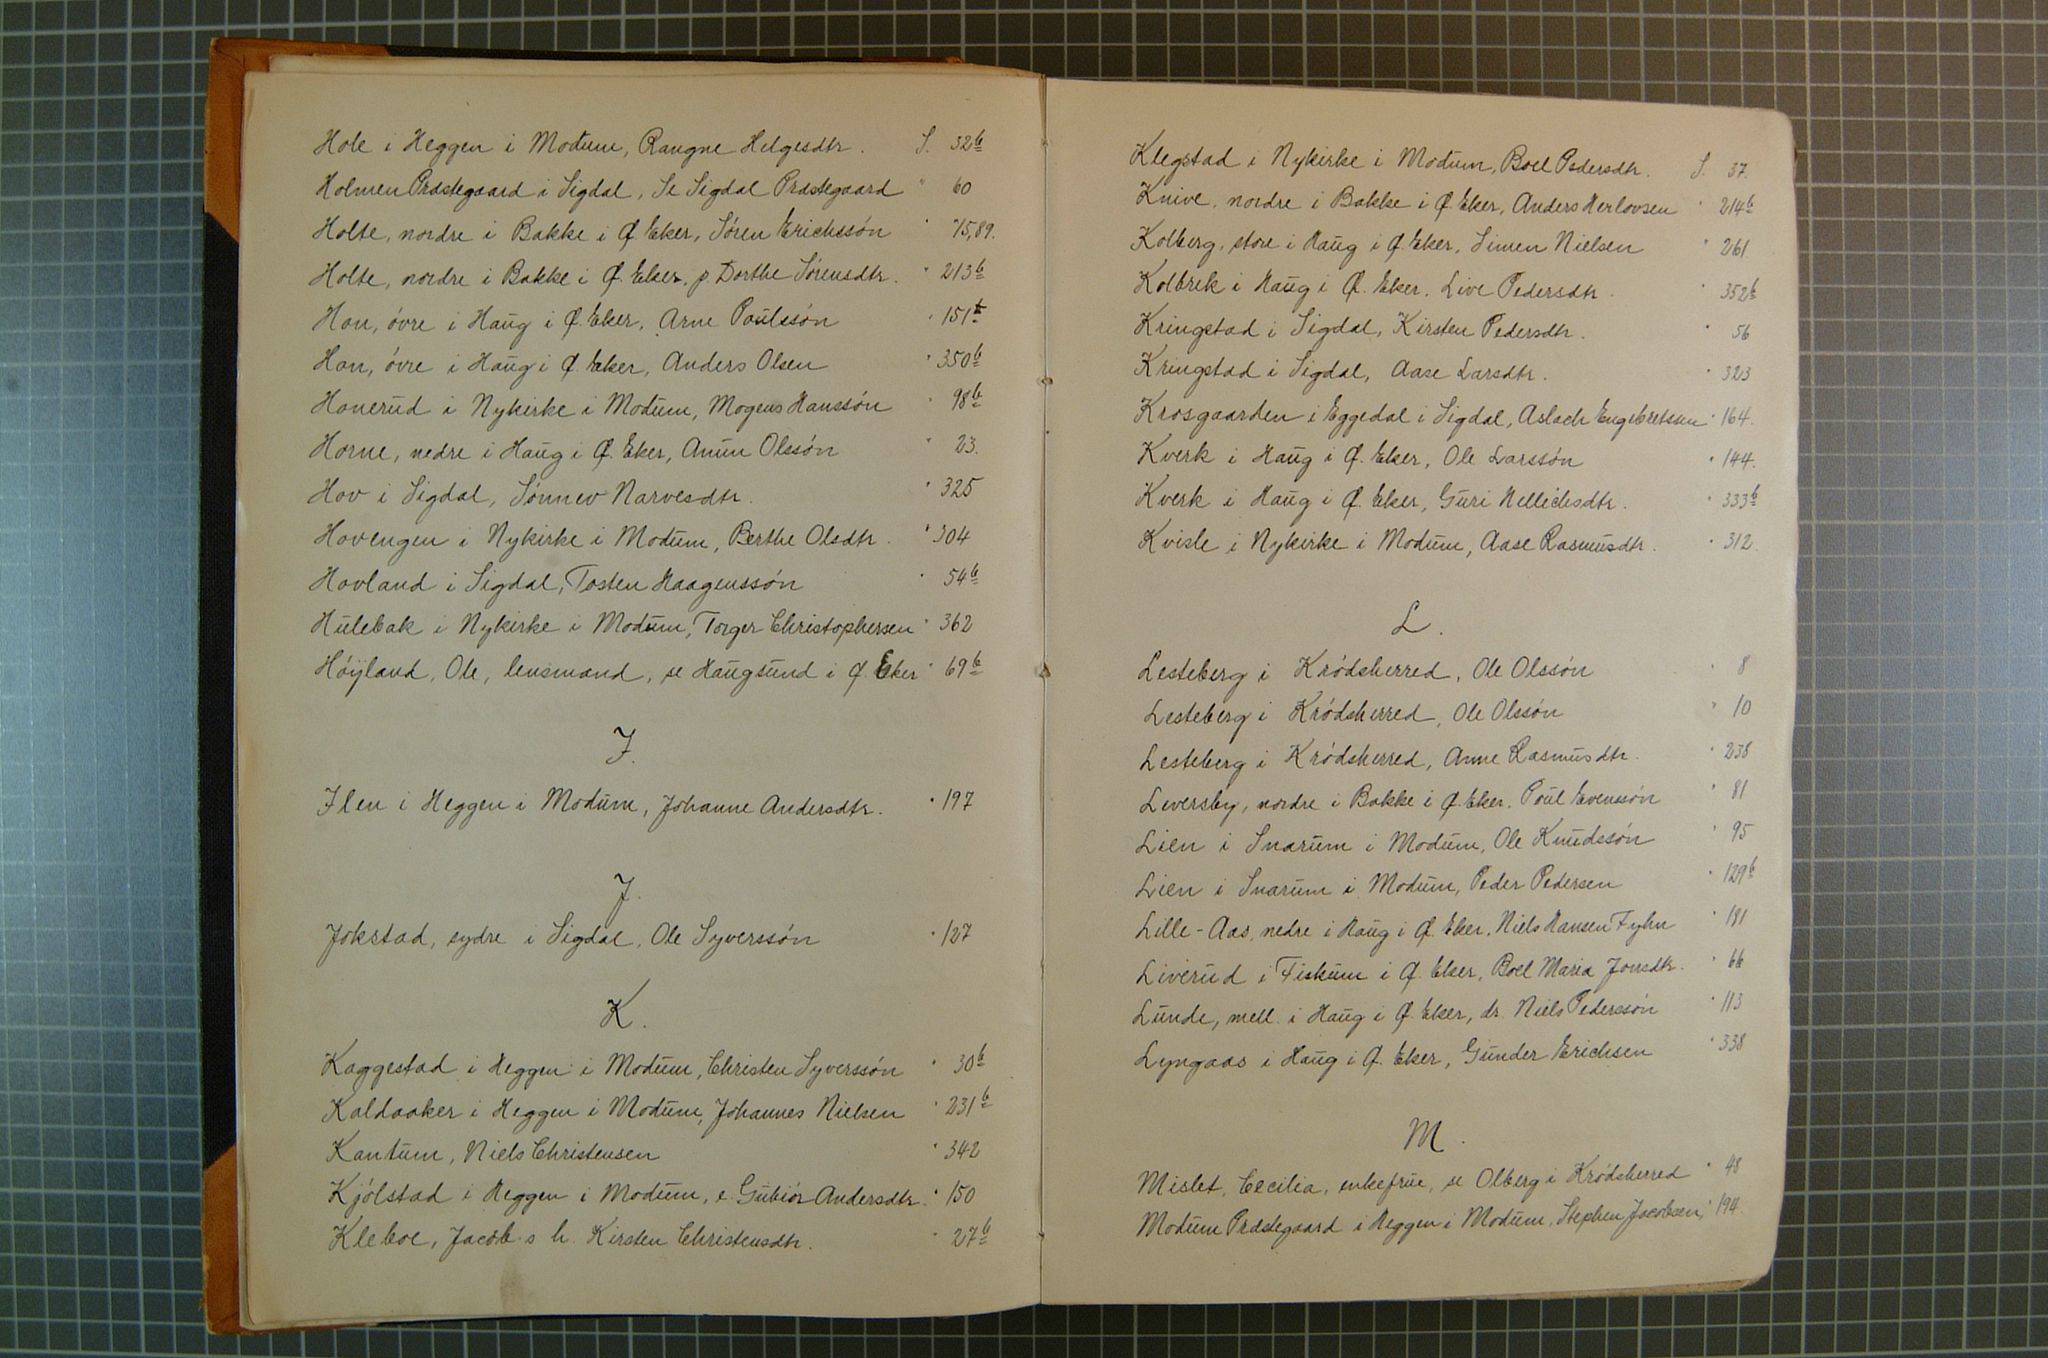 Hole i Heggen i Modum, Rangne Helgesdtr. S. 52b
Holmen Præstegaard i Sigdal, Se Sigdal Præstegaard " 60
Holte, nordre i Bakke i Ø. Eker, Søren Erichssön " 75,89.
Holte, nordre i Bakke i Ø. Eker, p. Dorthe Sørensdtr. " 213b
Hon, övre i Haug i Ø. Eker, Arne Poulssön " 151b
Hon, övre i Haug i Ø. Eker, Anders Olsen " 350b
Honerud i Nykirke i Modum, Mogens Hanssön " 98b
Horne, nedre i Haug i Ø. Eker, Amun Olssön " 23.
Hov i Sigdal, Sønnev Narvesdtr. " 325
Hovengen i Nykirke i Modum, Berthe Olsdtr. " 304
Hovland i Sigdal, Tosten Haagenssön " 54b
Hulebak i Nykirke i Modum, Torger Christophersen " 362
Höyland, Ole, lensmand, se Haugsund i Ø. Eker " 69b
I.
Ilen i Heggen i Modum, Johanne Andersdtr. " 197
J.
Jokstad, sydre i Sigdal, Ole Syverssön " 127
K.
Kaggestad i Heggen i Modum, Christen Syverssön " 30b
Kaldaaker i Heggen i Modum, Johannes Nielsen " 231b
Kantum, Niels Christensen " 342
Kjölstad i Heggen i Modum, e. Gubiör Andersdtr. " 150
Kleboe, Jacob s h. Kirsten Christensdtr. " 27b
Klegstad i Nykirke i Modum, Boel Pedersdtr. S. 37.
Knive, nordre i Bakke i Ø. Eker, Anders Herlovsen " 214b
Kolberg, store i Haug i Ø. Eker, Simen Nielsen " 261.
Kolbrek i Haug i Ø. Eker, Live Pedersdtr. " 352b
Kringstad i Sigdal, Kirsten Pedersdtr. " 56
Kringstad i Sigdal, Aase Larsdtr. " 323
Krosgaarden i Eggedal i Sigdal, Aslach Engebretssen " 164.
Kverk i Haug i Ø. Eker, Ole Larssön " 144.
Kverk i Haug i Ø. Eker, Guri Nellichsdtr. " 333b
Kvisle i Nykirke i Modum, Aase Rasmusdtr. " 312.
L.
Lesteberg i Krödsherred, Ole Olssön " 8
Lesteberg i Krödsherred, Ole Olssön " 10
Lesteberg i Krödsherred, Anne Rasmusdtr. " 238
Leversby, nordre i Bakke i Ø. Eker, Poul Evenssön " 81
Lien i Snarum i Modum, Ole Knudssön " 95
Lien i Snarum i Modum, Peder Pedersen " 129b
Lille-Aas, nedre i Haug i Ø. Eker, Niels Hansen Fyhn " 181
Liverud i Fiskum i Ø. Eker, Boel Maria Jonsdtr. " 66
Lunde, mell. i Haug i Ø. Eker, dr. Niels Pederssön " 113
Lyngaas i Haug i Ø. Eker, Gunder Erichsen " 338
M.
Mislet, Cecilia, enkefrue, se Olberg i Krödsherred " 48
Modum Præstegaard i Heggen i Modum, Stephen Jacobsen, " 194.